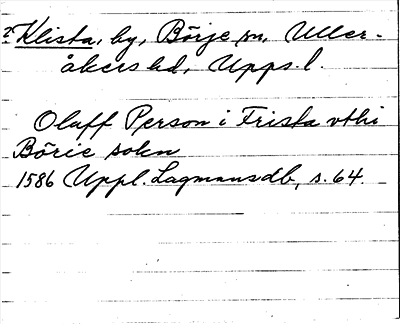 Klista, by, Börje sn, Uller-
åkers hd, Upps. l.
Olaff Person i Frista vthi
Börie sokn
1586 Uppl. Lagmansdb, s. 64.